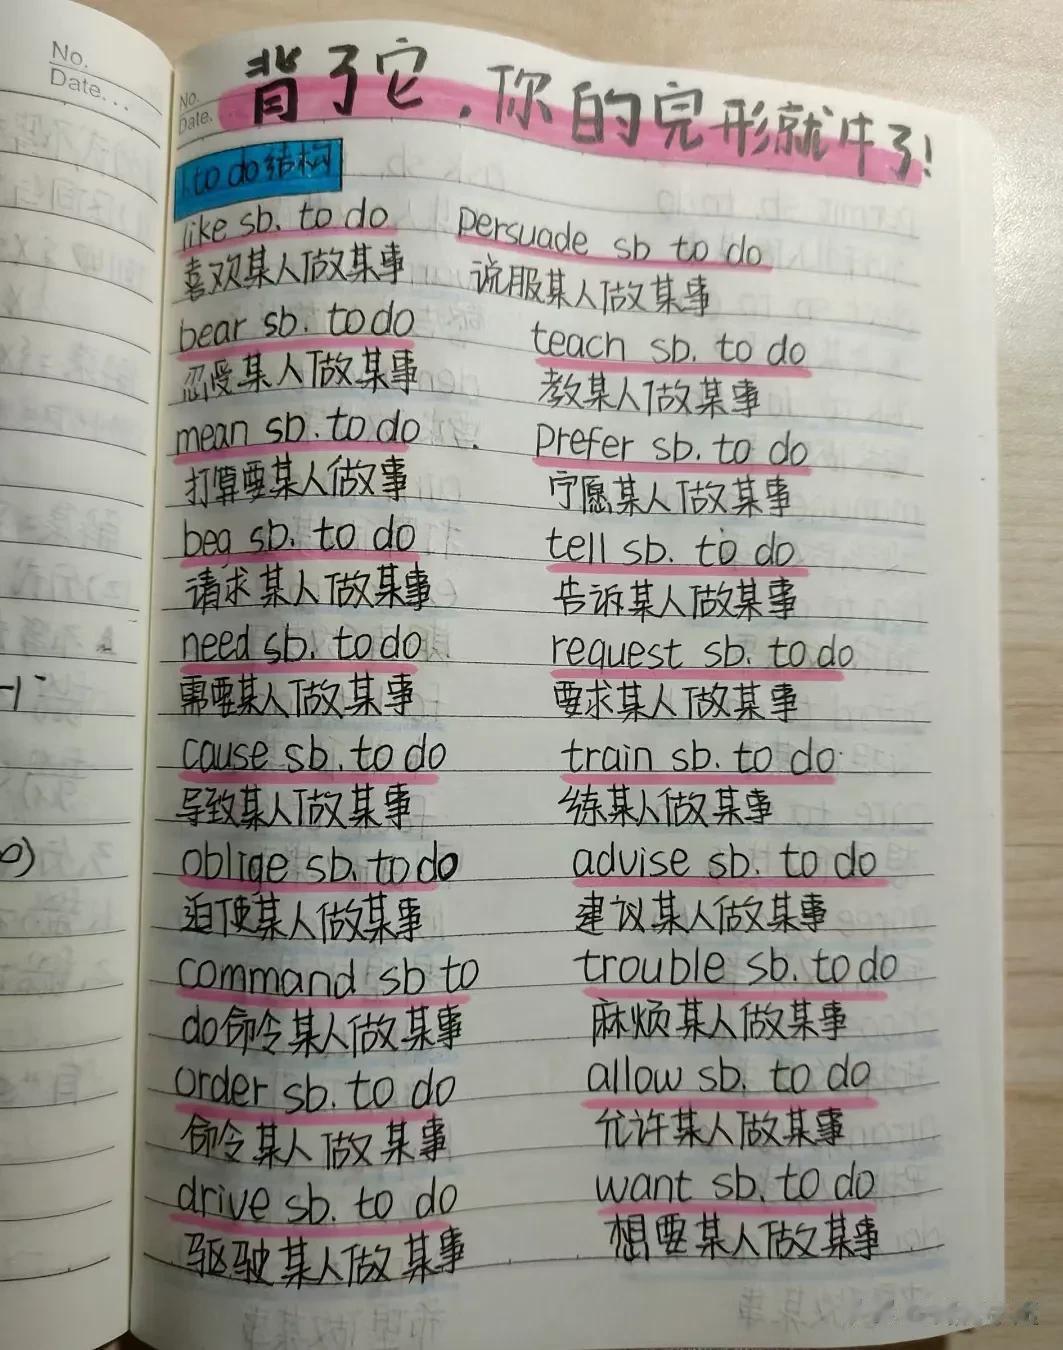 No.
Date...
No.
Date.
背了它，你的完形就牛了！
to do结构
like sb. to do persuade sb to do
喜欢某人做某事 说服某人做某事
bear sb. to do teach sb. to do
忍受某人做某事 教某人做某事
mean sb. to do prefer sb. to do
打算要某人做事 宁愿某人做某事
beg sb. to do tell sb. to do
请求某人做某事 告诉某人做某事
need sb. to do request sb. to do
需要某人做某事 要求某人做某事
cause sb. to do train sb. to do
导致某人做某事 练某人做某事
oblige sb. to do advise sb. to do
迫使某人做某事 建议某人做某事
command sb to trouble sb. to do
do命令某人做某事 麻烦某人做某事
order sb. to do allow sb. to do
命令某人做某事 允许某人做某事
drive sb. to do want sb. to do
驱驶某人做某事 想要某人做某事